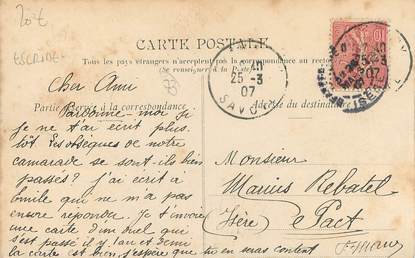 20 €
ESCRIME
CARTE POSTALE
Tous les pays étrangers n'acceptent pas la correspondance au recto
(Se renseigner à la Poste)
Partie réservée à la correspondance
Adresse du destinataire
25 -3
07
SAVOIE
10
07
Cher Ami
Pardonne-moi si
je ne t'ai écrit plus
tôt. Les obsèques de notre
camarade se sont-ils bien
passés? j'ai écrit à
Emile qui ne m'a pas
encore répondu. Je t'envoie
une carte d'un duel qui
s'est passé il y 1 an et demi
la carte est bien j'espère que tu en seras content
Monsieur
Marius Rebatel
à Pact
(Isère)